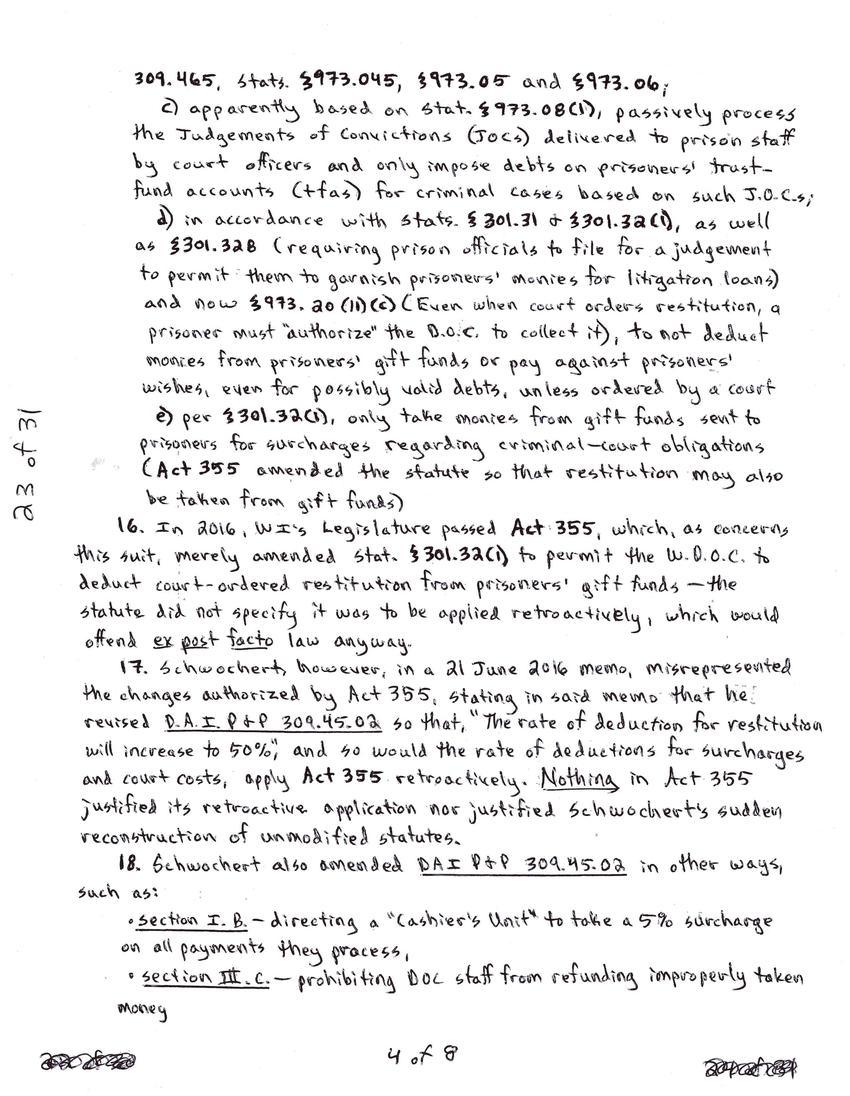 309.465, stats. §973.045, §973.05 and §973.06;
c) apparently based on stat. §973.08(1), passively process
the Judgements of Convictions (JOCs) delivered to prison staff
by court officers and only impose debts on prisoners' trust-
fund accounts (tfas) for criminal cases based on such J.O.C.s;
d) in accordance with stats. §301.31 & §301.32(1), as well
as §301.328 (requiring prison officials to file for a judgement
to permit them to garnish prisoners' monies for litigation loans)
and now §973.20(11)(c) (Even when court orders restitution, a
prisoner must "authorize" the D.O.C. to collect it), to not deduct
monies from prisoners' gift funds or pay against prisoners'
wishes, even for possibly valid debts, unless ordered by a court
e) per §301.32(1), only take monies from gift funds sent to
prisoners for surcharges regarding criminal-court obligations
(Act 355 amended the statute so that restitution may also
be taken from gift funds)
16. In 2016, WI's Legislature passed Act 355, which, as concerns
this suit, merely amended stat. §301.32(1) to permit the W.D.O.C. to
deduct court-ordered restitution from prisoners' gift funds — the
statute did not specify it was to be applied retroactively, which would
offend ex post facto law anyway.
17. Schwochert, however, in a 21 June 2016 memo, misrepresented
the changes authorized by Act 355, stating in said memo that he
revised D.A.I. P&P 309.45.02 so that, "The rate of deduction for restitution
will increase to 50%", and so would the rate of deductions for surcharges
and court costs, apply Act 355 retroactively. Nothing in Act 355
justified its retroactive application nor justified Schwochert's sudden
reconstruction of unmodified statutes.
18. Schwochert also amended DAI P&P 309.45.02 in other ways,
such as:
• section I. B. — directing a "Cashier's Unit" to take a 5% surcharge
on all payments they process,
• section III. C. — prohibiting DOC staff from refunding improperly taken
money
4 of 8
23 of 31